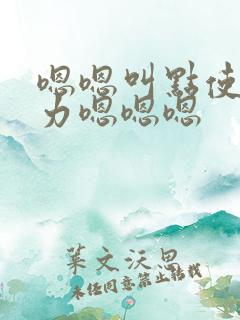 嗯嗯叫點使
力嗯嗯嗯
葉文沃思
未经同意禁止转载